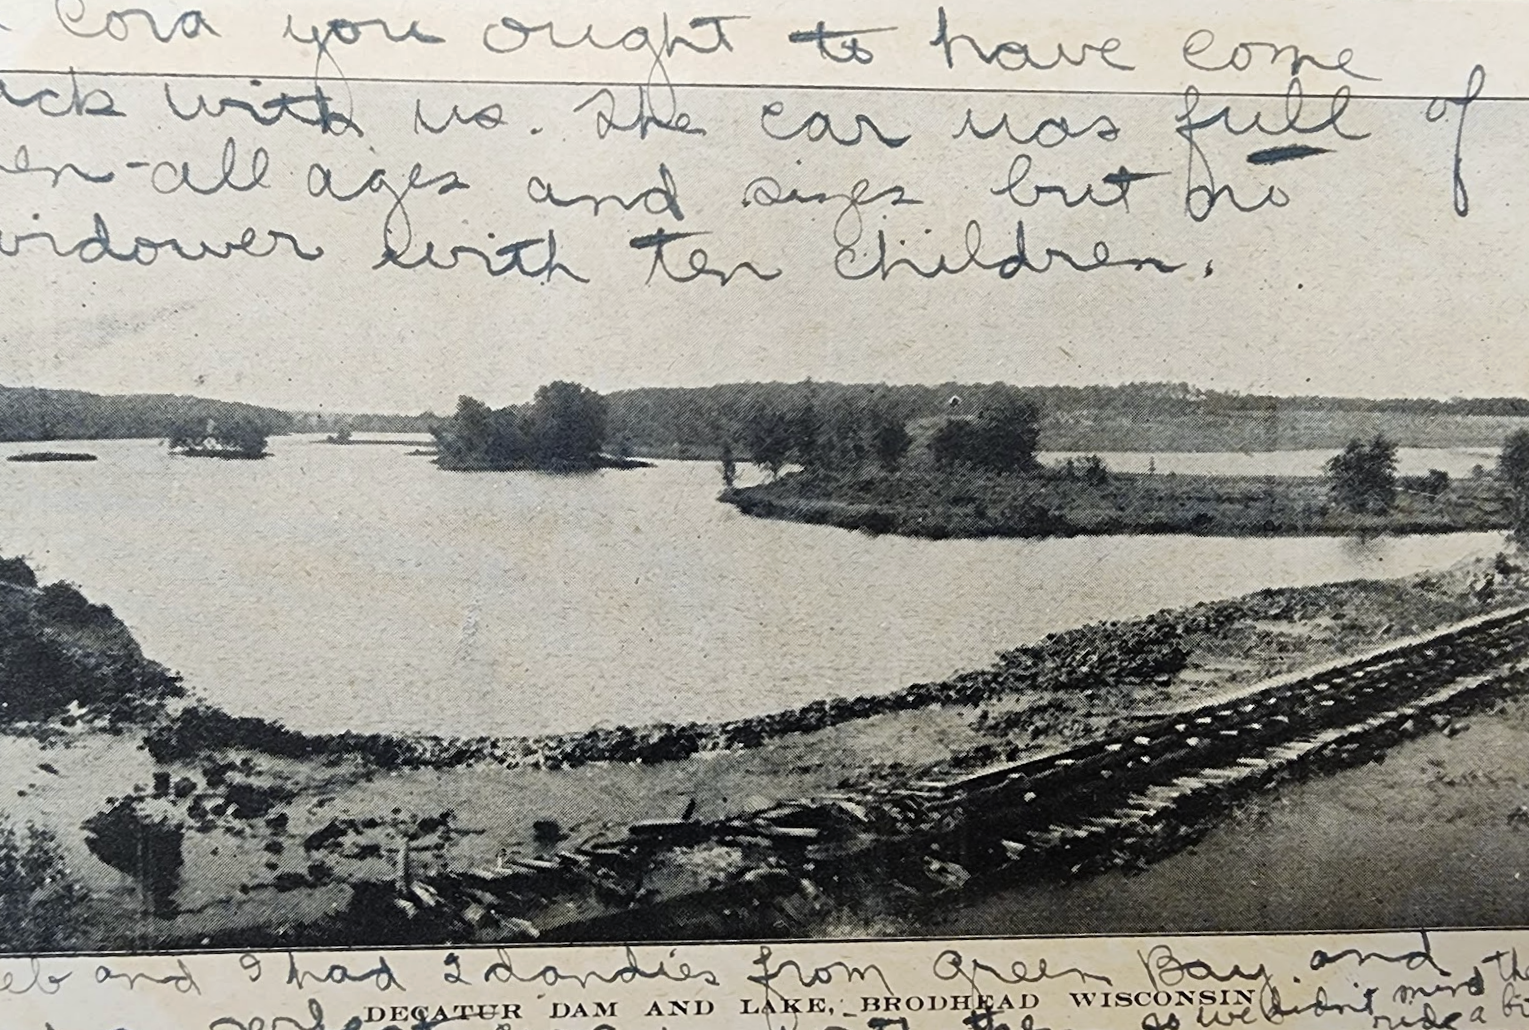 Cora you ought to have come
with us. The car was full of
all ages and sizes but no
widower with ten children.
and I had 2 dandies from Green Bay. and
DECATUR DAM AND LAKE, BRODHEAD WISCONSIN
so we didn't mind the
ride a